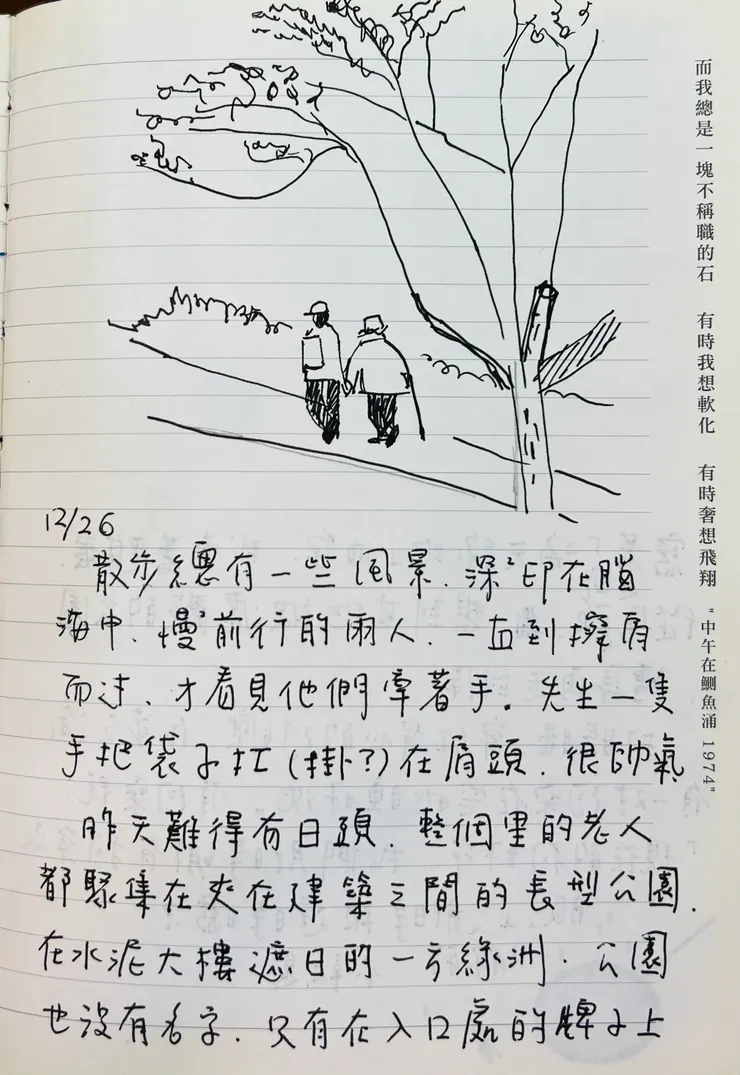 而我總是一塊不稱職的石　有時我想軟化　有時奢想飛翔　"中午在鰂魚涌 1974"
12/26
散步總有一些風景.深²印在腦
海中.慢²前行的兩人.一直到擦肩
而过.才看見他們牽著手。先生一隻
手把袋子扛(掛?)在肩頭.很帥氣
昨天難得有日頭.整個里的老人
都聚集在夾在建築之間的長型公園.
在水泥大樓遮日的一方綠洲.公園
也沒有名字.只有在入口處的牌子上